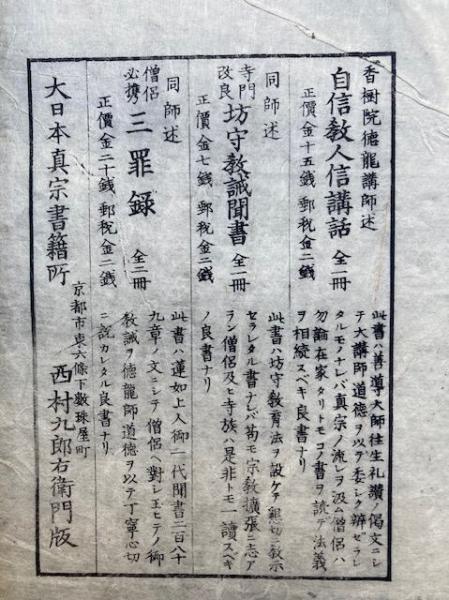 香樹院德龍講師述
自信教人信講話 全一冊
正價金十五錢 郵税金二錢
此書ハ善導大師往生礼讃ノ偈文ニシ
テ大講師道德ヲ以テ委シク辨ゼラレ
タルモノナレバ真宗ノ流レヲ汲ム僧侶ハ
勿論在家タリトモコノ書ヲ読テ法義
ヲ相続スベキ良書ナリ
同師述
寺門改良 坊守教誡聞書 全一冊
正價金七錢 郵税金二錢
此書ハ坊守教育法ヲ設ケテ懇切ニ教示
セラレタル書ナレバ苟モ宗教擴張ニ志ア
ラン僧侶及ヒ寺族ハ是非トモ一讀スベキ
ノ良書ナリ
同師述
僧侶必携 三罪録 全二冊
正價金二十錢 郵税金二錢
此書ハ蓮如上人御一代聞書二百八十
九章ノ文ニシテ僧侶ヘ對シ玉ヒテノ御
教誡ヲ德龍師道德ヲ以テ丁寧心切
ニ説カレタル良書ナリ
大日本真宗書籍所
京都市東六條下数珠屋町
西村九郎右衛門版